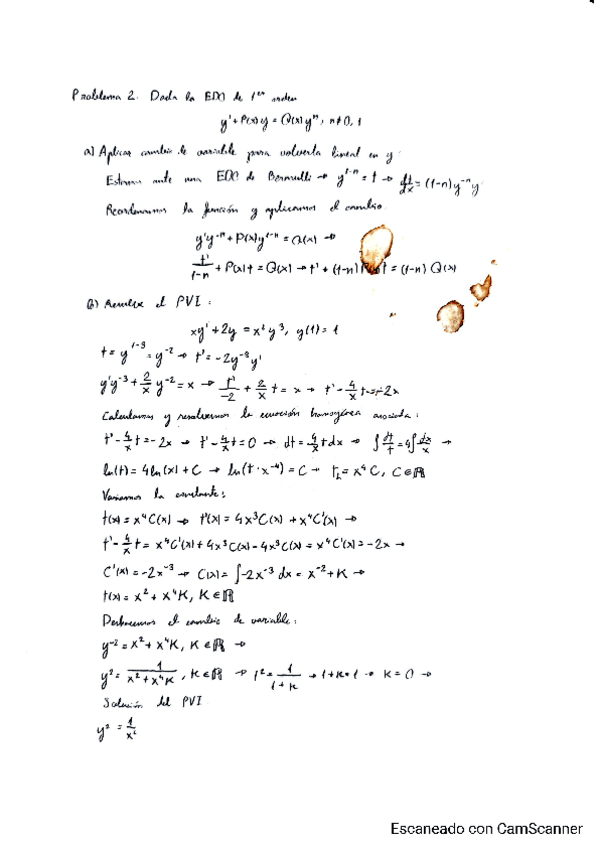 Problema 2. Dada la EDO de 1er orden
y' + P(x)y = Q(x)yⁿ, n≠0,1
a) Aplicar cambio de variable para volverla lineal en y
Estamos ante una EDO de Bernoulli → y¹⁻ⁿ = t → dt/dx = (1-n)y⁻ⁿy'
Reordenamos la función y aplicamos el cambio
y'y⁻ⁿ + P(x)y¹⁻ⁿ = Q(x) →
t'/(1-n) + P(x)t = Q(x) → t' + (1-n) t = (1-n) Q(x)
b) Resolver el PVI:
xy' + 2y = x²y³, y(1) = 1
t = y¹⁻³ = y⁻² → t' = -2y⁻³y'
y'y⁻³ + 2/x y⁻² = x → t'/-2 + 2/x t = x → t' - 4/x t = -2x
Calculamos y resolvemos la ecuación homogénea asociada:
t' - 4/x t = -2x → t' - 4/x t = 0 → dt = 4/x t dx → ∫dt/t = 4∫dx/x →
ln(t) = 4ln(x) + C → ln(t·x⁻⁴) = C → tₕ = x⁴C, C∈ℝ
Variamos la constante:
t(x) = x⁴C(x) → t'(x) = 4x³C(x) + x⁴C'(x) →
t' - 4/x t = x⁴C'(x) + 4x³C(x) - 4x³C(x) = x⁴C'(x) = -2x →
C'(x) = -2x⁻³ → C(x) = ∫-2x⁻³ dx = x⁻² + K →
t(x) = x² + x⁴K, K∈ℝ
Deshacemos el cambio de variable:
y⁻² = x² + x⁴K, K∈ℝ →
y² = 1/(x² + x⁴K), K∈ℝ → 1² = 1/(1+K) → 1+K=1 → K = 0 →
Solución del PVI
y² = 1/x²
Escaneado con CamScanner